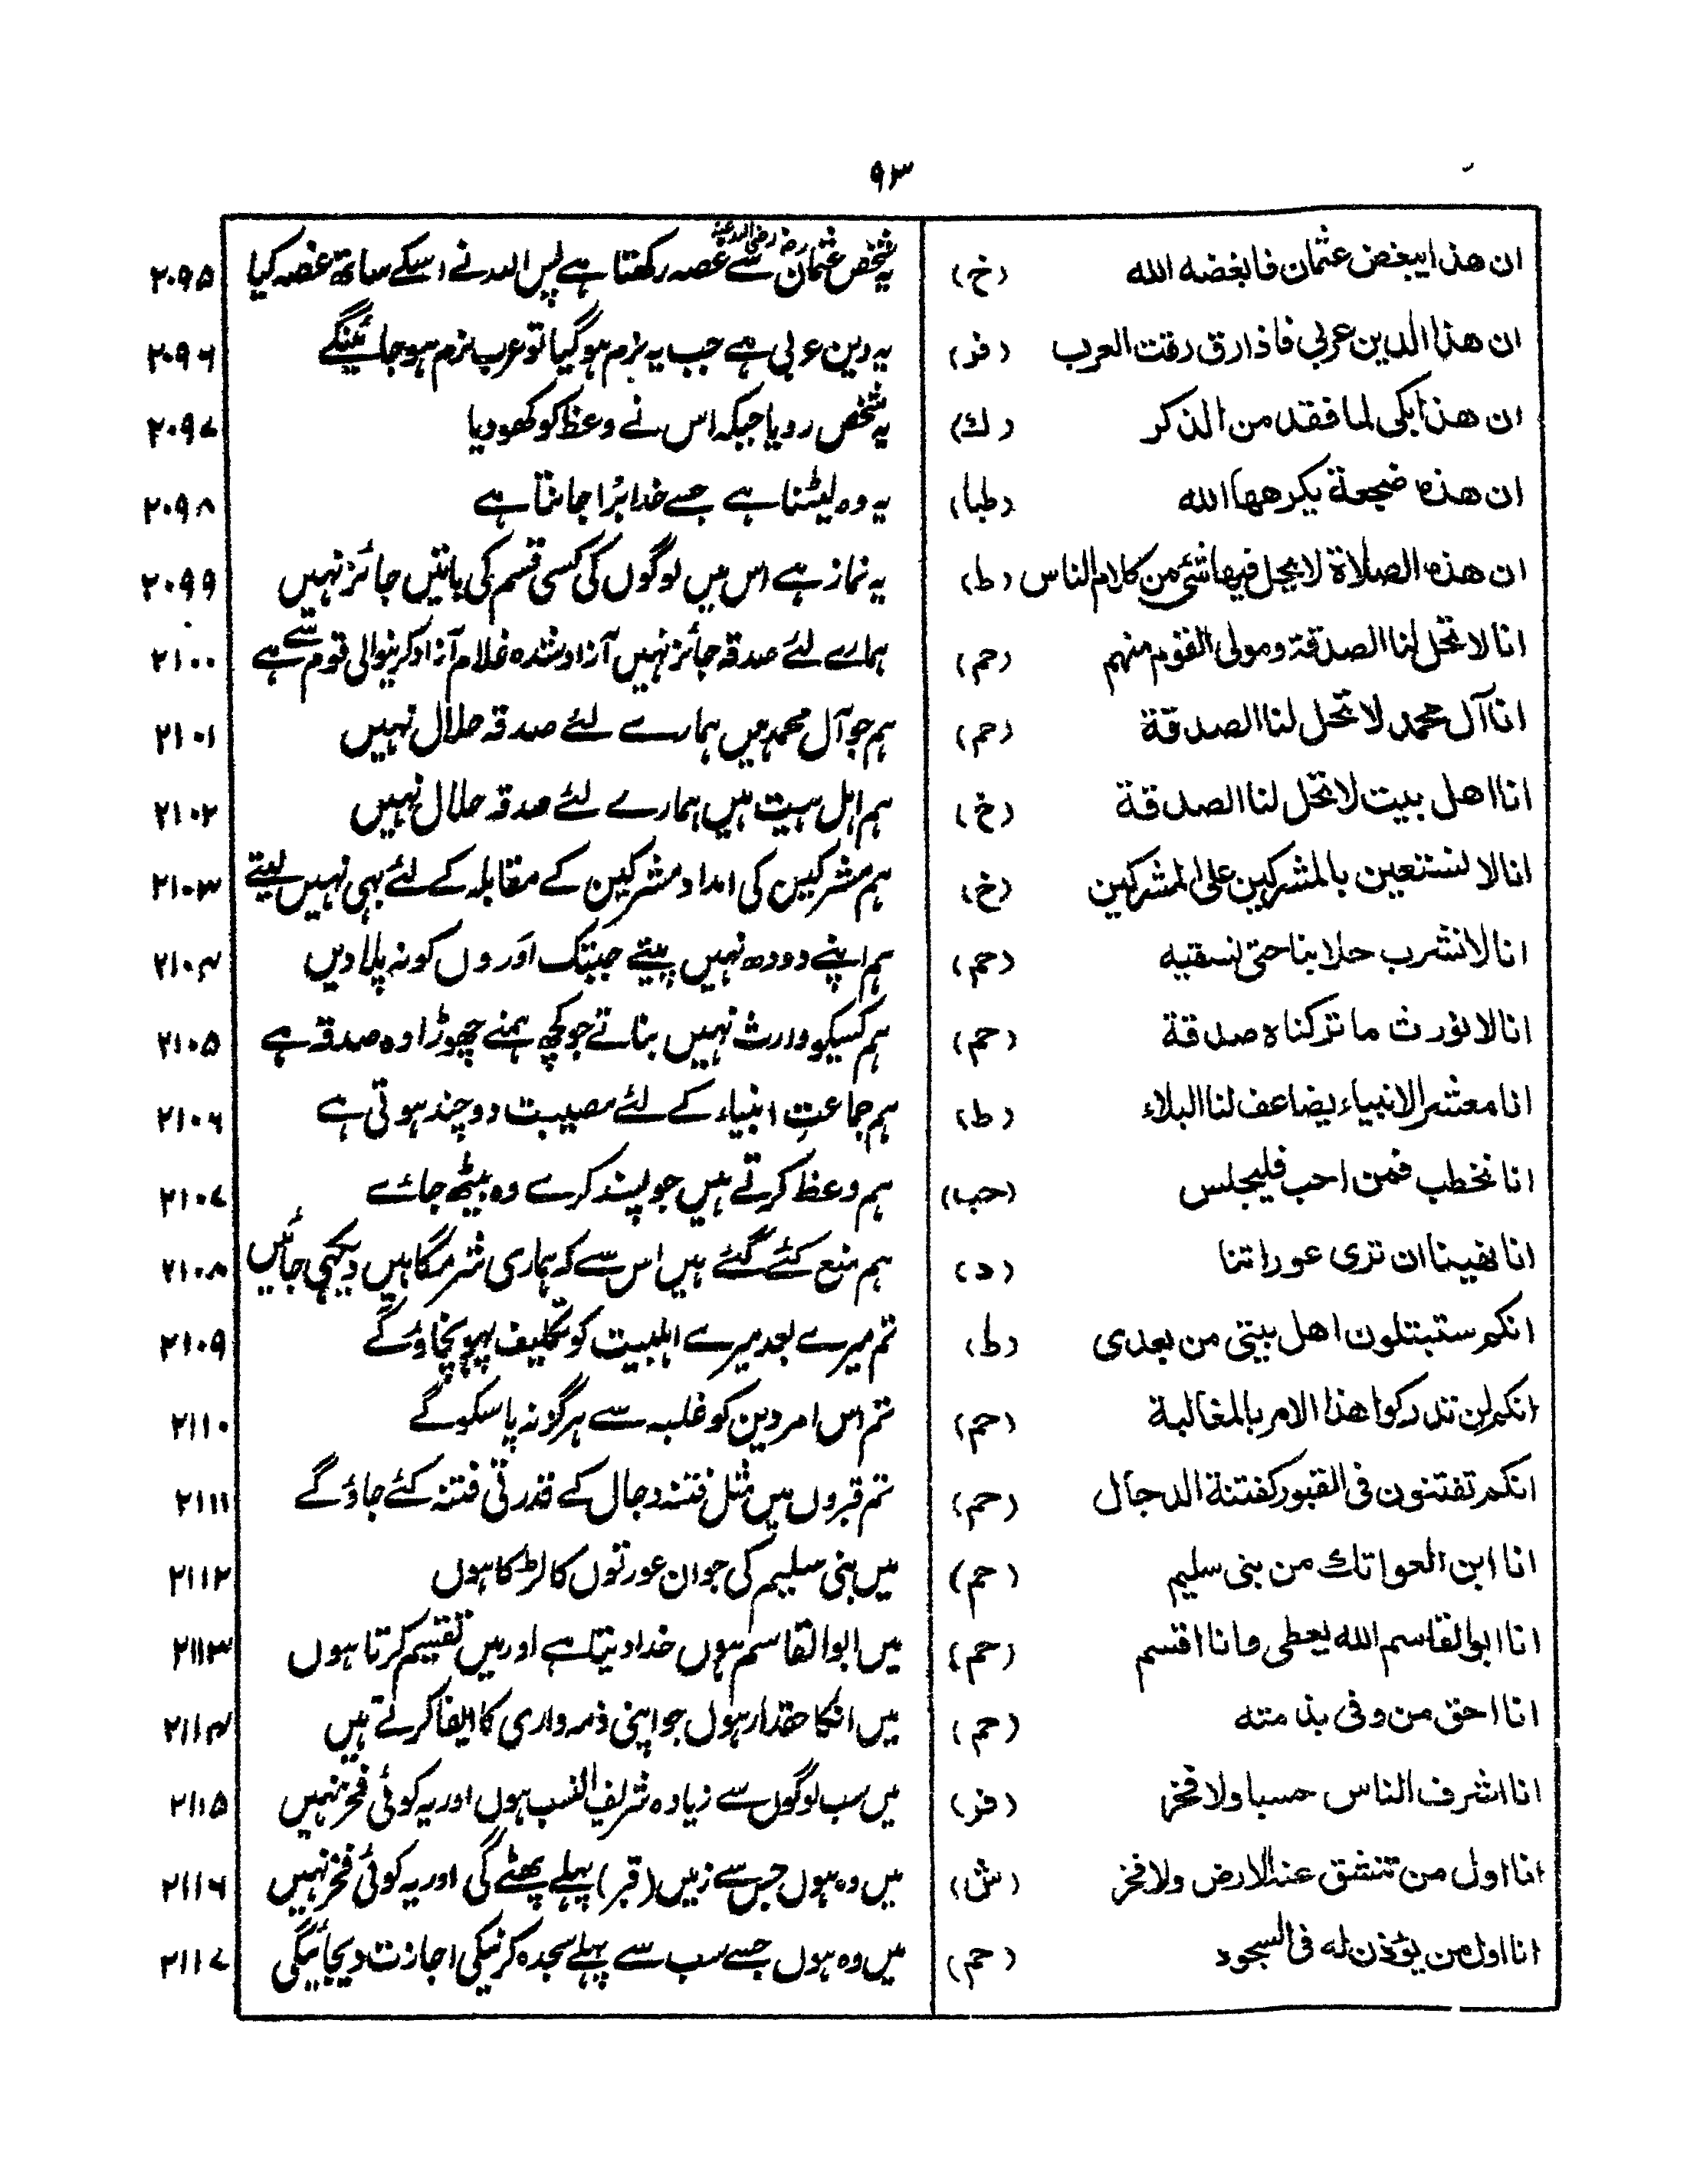 ۹۳
ان هذا يبغض عثمان فابغضه الله (خ) یہ شخص عثمان رضہ رضی اللہ عنہ سے غصہ رکھتا ہے پس اللہ نے اسکے ساتھ غصہ کیا ۲۰۹۵
ان هذا الدين عربي فاذا رق رقت العرب (فر) یہ دین عربی ہے جب یہ نرم ہوگیا تو عرب نرم ہوجائینگے ۲۰۹۶
ان هذا بكى لما فقد من الذكر (ك) یہ شخص رودیا جبکہ اس نے وعظ کو کھودیا ۲۰۹۷
ان هذه ضجعة يكرهها الله (طبا) یہ وہ لیٹنا ہے جسے خدا بُرا جانتا ہے ۲۰۹۸
ان هذه الصلاة لا يحل فيها شئ من كلام الناس (ط) یہ نماز ہے اس میں لوگوں کی کسی قسم کی باتیں جائز نہیں ۲۰۹۹
انا لا تحل لنا الصدقة ومولى القوم منهم (حم) ہمارے لئے صدقہ جائز نہیں آزاد شدہ غلام آزاد کرنیوالی قوم سے ہے ۲۱۰۰
انا آل محمد لا تحل لنا الصدقة (حم) ہم جو آل محمد ہیں ہمارے لئے صدقہ حلال نہیں ۲۱۰۱
انا اهل بيت لا تحل لنا الصدقة (خ) ہم اہل بیت ہیں ہمارے لئے صدقہ حلال نہیں ۲۱۰۲
انا لا نستعين بالمشركين على المشركين (خ) ہم مشرکین کی امداد مشرکین کے مقابلہ کے لئے بہی نہیں لیتے ۲۱۰۳
انا لا نشرب حلابنا حتى نسقيه (حم) ہم اپنے دودھ نہیں پیتے جبتک اَوروں کو نہ پلادیں ۲۱۰۴
انا لا نورث ما تركناه صدقة (حم) ہم کسیکو وارث نہیں بناتے جو کچھ ہمنے چھوڑا وہ صدقہ ہے ۲۱۰۵
انا معشر الانبياء يضاعف لنا البلاء (ط) ہم جماعتِ انبیاء کے لئے مصیبت دوچند ہوتی ہے ۲۱۰۶
انا نخطب فمن احب فليجلس (حب) ہم وعظ کرتے ہیں جو پسند کرے وہ بیٹھ جائے ۲۱۰۷
انا نهينا ان ترى عوراتنا (د) ہم منع کئے گئے ہیں اس سے کہ ہماری شرمگاہیں دیکھی جائیں ۲۱۰۸
انكم ستبتلون اهل بيتى من بعدى (ط) تم میرے بعد میرے اہلبیت کو تکلیف پہونچاؤگے ۲۱۰۹
انكم لن تدركوا هذا الامر بالمغالبة (حم) تم اس امر دین کو غلبہ سے ہرگز نہ پاسکوگے ۲۱۱۰
انكم تفتنون فى القبور كفتنة الدجال (حم) تم قبروں میں مثل فتنہ دجال کے قدرتی فتنہ کئے جاؤگے ۲۱۱۱
انا ابن العواتك من بنى سليم (حم) میں بنی سلیم کی جوان عورتوں کا لڑکا ہوں ۲۱۱۲
انا ابو القاسم الله يعطى وانا اقسم (حم) میں ابوالقاسم ہوں خدا دیتا ہے اور میں تقسیم کرتا ہوں ۲۱۱۳
انا احق من وفى بذمته (حم) میں انکا حقدار ہوں جو اپنی ذمہ واری کا ایفا کرتے ہیں ۲۱۱۴
انا اشرف الناس حسبا ولا فخر (فر) میں سب لوگوں سے زیادہ شریف النسب ہوں اور یہ کوئی فخر نہیں ۲۱۱۵
انا اول من تنشق عنه الارض ولا فخر (ش) میں وہ ہوں جس سے زمیں (قبر) پہلے پھٹے گی اور یہ کوئی فخر نہیں ۲۱۱۶
انا اول من يؤذن له فى السجود (حم) میں وہ ہوں جسے سب سے پہلے سجدہ کرنیکی اجازت دیجائیگی ۲۱۱۷